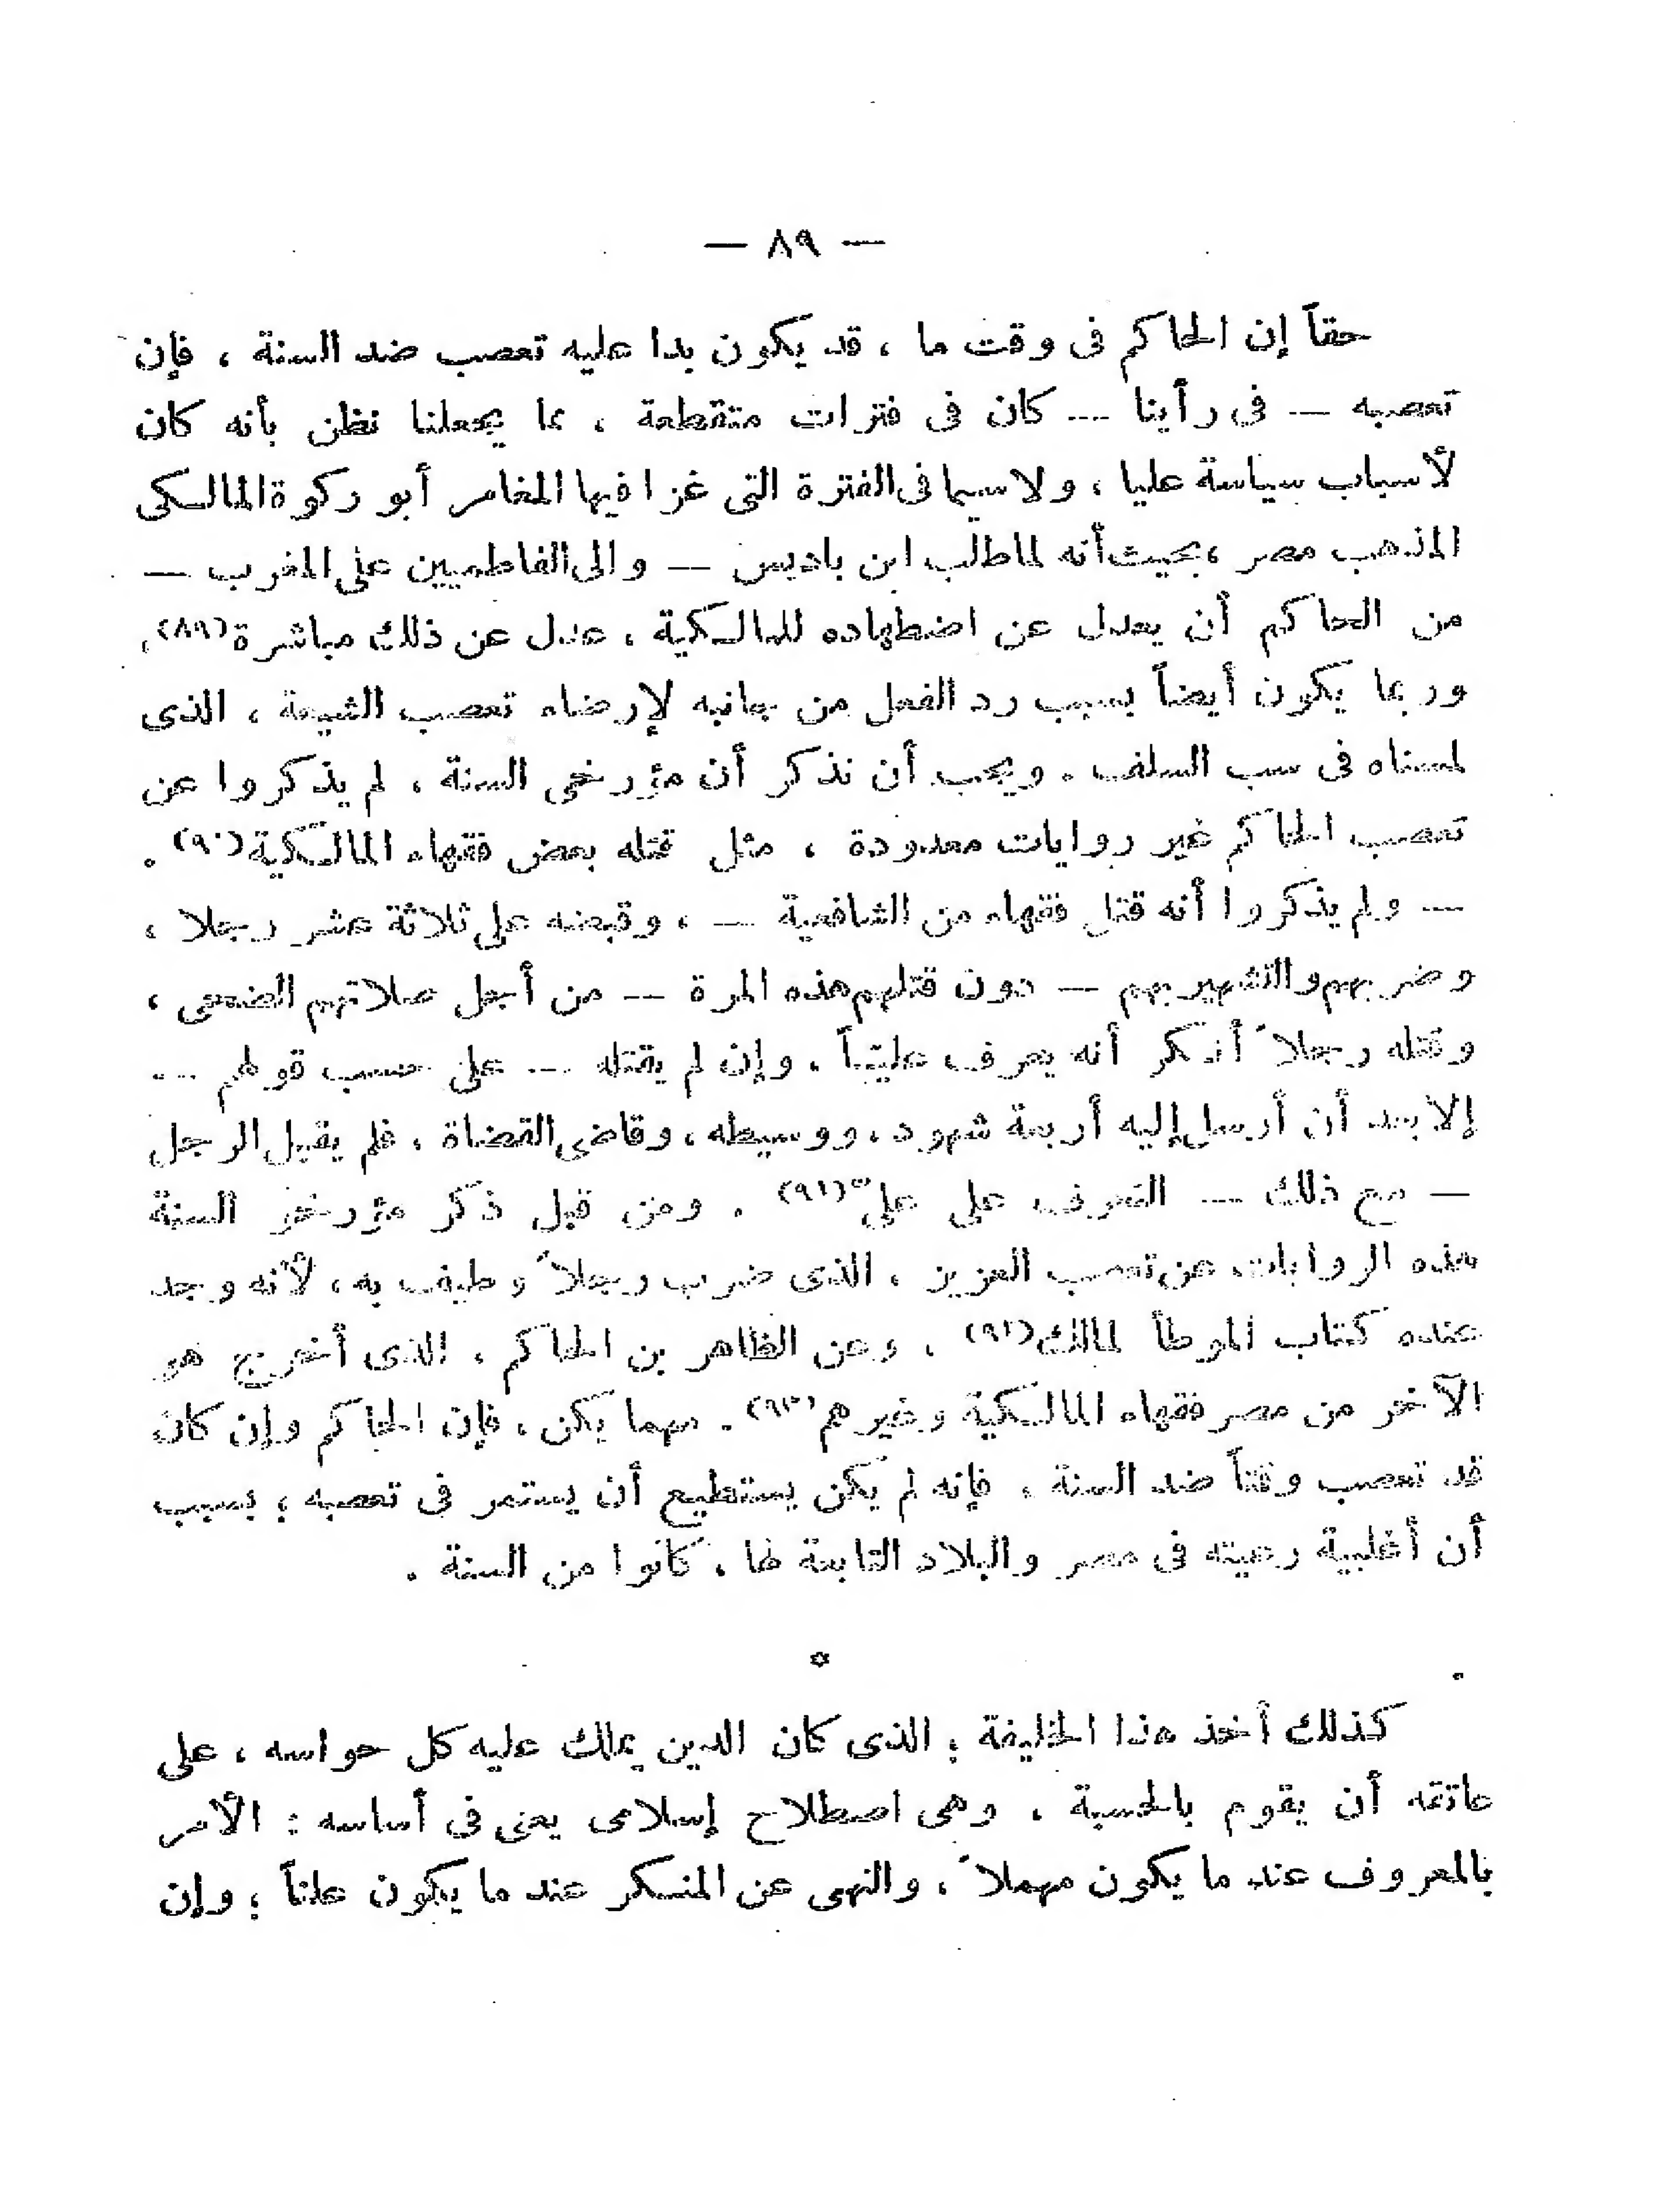 — ٨٩ —
حقاً إن الحاكم فى وقت ما ، قد يكون بدا عليه تعصب ضد السنة ، فإن
تعصبه — فى رأينا — كان فى فترات متقطعة ، مما يجعلنا نظن بأنه كان
لأسباب سياسة عليا ، ولاسيما فى الفترة التى غزا فيها المغامر أبو ركوة المالكى
المذهب مصر ، بحيث أنه لما طلب ابن باديس — والى الفاطميين على المغرب —
من الحاكم أن يعدل عن اضطهاده للمالكية ، عدل عن ذلك مباشرة (٨٩) .
وربما يكون أيضاً بسبب رد الفعل من جانبه لإرضاء تعصب الشيعة ، الذى
لمسناه فى سب السلف . ويجب أن نذكر أن مؤرخى السنة ، لم يذكروا عن
تعصب الحاكم غير روايات معدودة ، مثل قتله بعض فقهاء المالكية (٩٠) .
— ولم يذكروا أنه قتل فقهاء من الشافعية — ، وقبضه على ثلاثة عشر رجلا ،
وضربهم والتشهير بهم — دون قتلهم هذه المرة — من أجل صلاتهم الضحى ،
وقتله رجلاً أنكر أنه يعرف عليّاً ، وإن لم يقتله — على حسب قولهم —
إلا بعد أن أرسل إليه أربعة شهود ، ووسيطه ، وقاضى القضاة ، فلم يقبل الرجل
— مع ذلك — التعرف على علىّ (٩١) . ومن قبل ذكر مؤرخو السنة
هذه الروايات عن تعصب العزيز ، الذى ضرب رجلاً وطيف به ، لأنه وجد
عنده كتاب الموطأ لمالك (٩٢) ، وعن الظاهر بن الحاكم ، الذى أخرج هو
الآخر من مصر فقهاء المالكية وغيرهم (٩٣) . مهما يكن ، فإن الحاكم وإن كان
قد تعصب وقتاً ضد السنة ، فإنه لم يكن يستطيع أن يستمر فى تعصبه ؛ بسبب
أن أغلبية رعيته فى مصر والبلاد التابعة لها ، كانوا من السنة .
*
كذلك أخذ هذا الخليفة ؛ الذى كان الدين يملك عليه كل حواسه ، على
عاتقه أن يقوم بالحسبة ، وهى اصطلاح إسلامى يعنى فى أساسه : الأمر
بالمعروف عند ما يكون مهملاً ، والنهى عن المنكر عند ما يكون علناً ؛ وإن